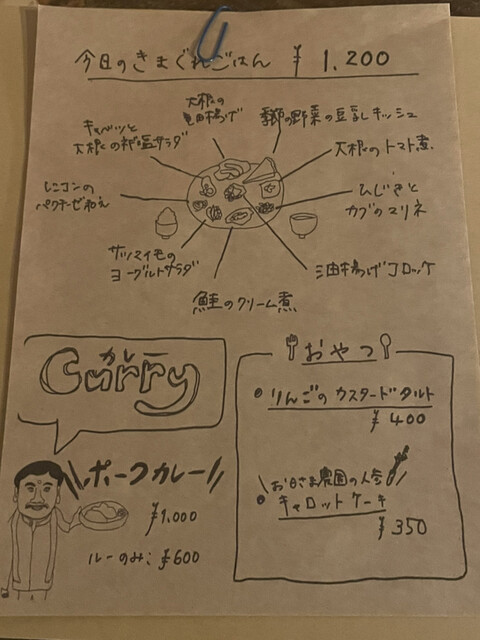 今日のきまぐれごはん ¥1,200
大根の
竜田揚げ
季節の野菜の豆乳キッシュ
キャベツと
大根の神塩サラダ
大根のトマト煮
レンコンの
バクチーゼ和え
ひじきと
カブのマリネ
サツマイモの
ヨーグルトサラダ
油揚げコロッケ
鮭のクリーム煮
カレー
Curry
ポークカレー
¥1,000
ルーのみ:¥600
おやつ
りんごのカスタードタルト
¥400
お日さま農園の人参
キャロットケーキ
¥350